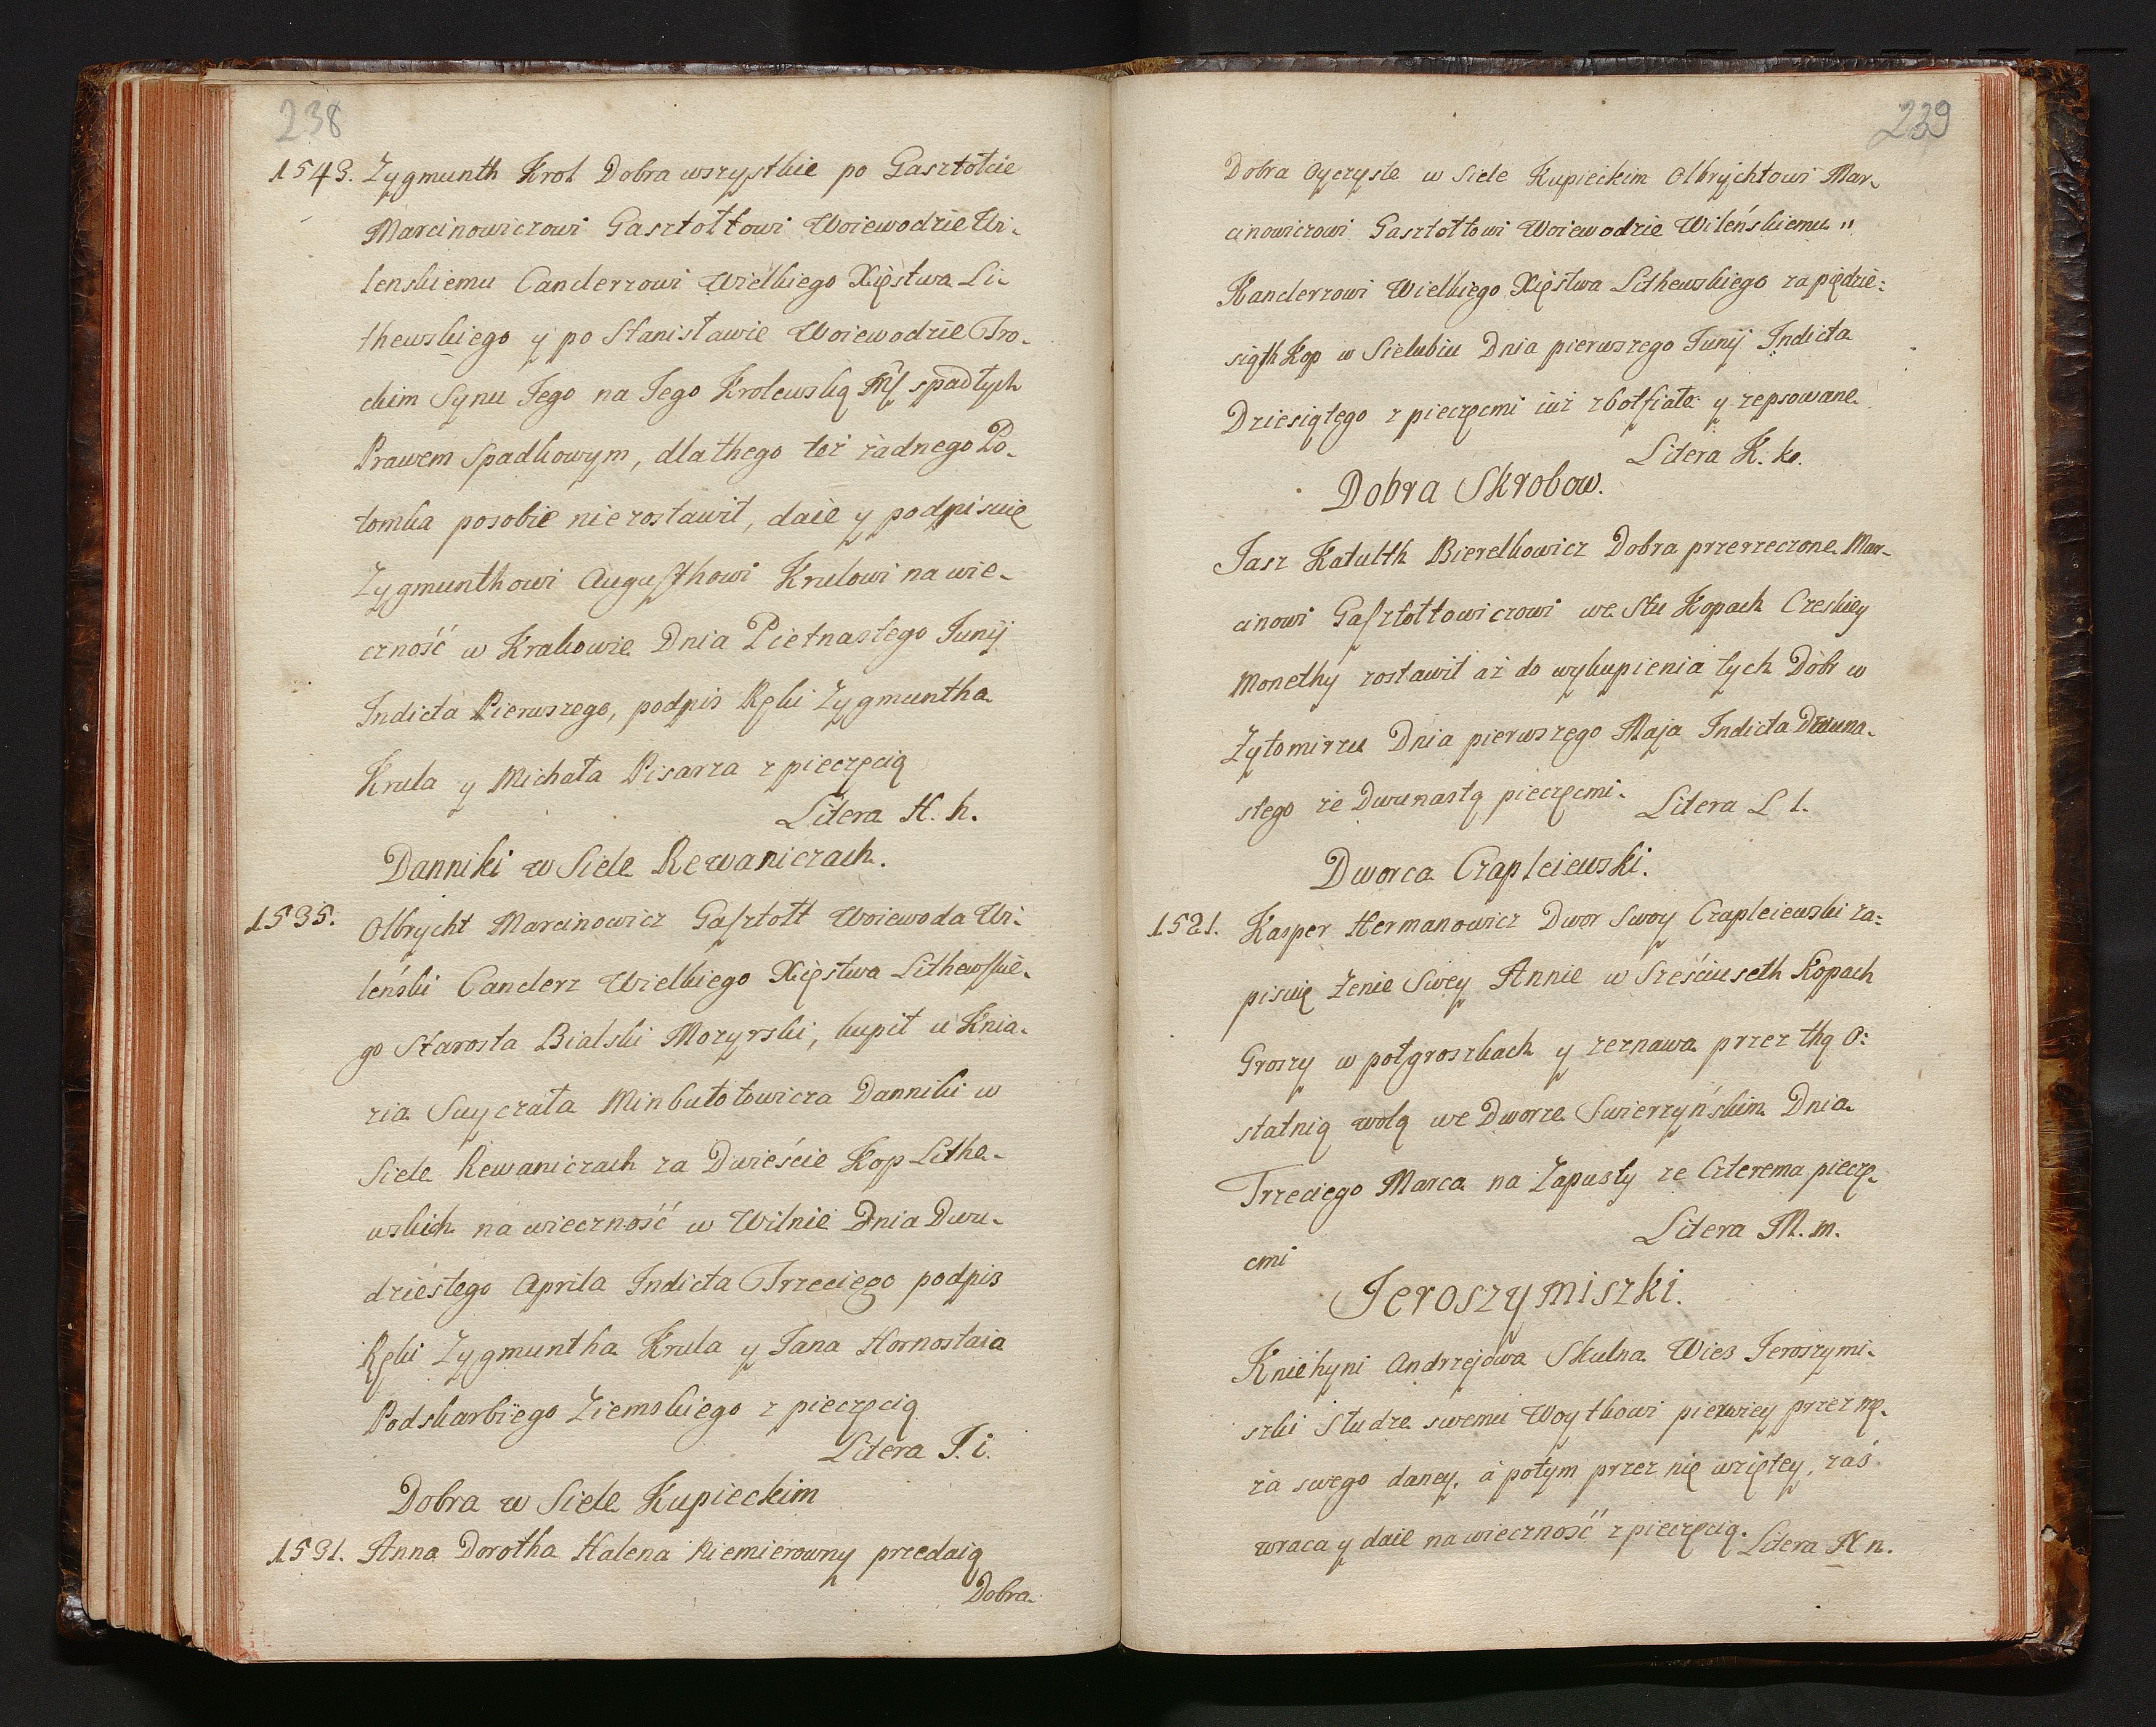 238
1543. Zygmunth Krol Dobra wszystkie po Gasztołcie
Marcinowiczowi Gasztołtowi Woiewodzie Wi-
lenskiemu Canclerzowi Wielkiego Xięstwa Li-
thewskiego y po Stanisławie Woiewodzie Tro-
ckim Synu Jego na Jego Krolewską Mś spadłych
Prawem Spadkowym, dla thego toż żadnego Po-
tomka po sobie nie zostawił, daie y podpisuię
Zygmunthowi Augusthowi Krulowi na wie-
czność w Krakowie Dnia Pietnastego Junij
Indicta Pierwszego, podpis Ręki Zygmuntha
Krula y Michała Pisarza z pieczęcią
Litera H. h.
Danniki w Siele Rewaniczach.
1535. Olbrycht Marcinowicz Gasztołt Woiewoda Wi-
leński Canclerz Wielkiego Xięstwa Lithewskie-
go Starosta Bialski Mozyrski, kupił u Knia-
zia Suyczata Minbułotowicza Danniki w
Siele Rewaniczach za Dwieście Kop Lithe-
wskich na wieczność w Wilnie Dnia Dwu-
dziestego Aprila Indicta Trzeciego podpis
Ręki Zygmuntha Krula y Jana Hornostaia
Podskarbiego Ziemskiego z pieczęcią
Litera J. i.
Dobra w Siele Kupieckim
1531. Anna Dorotha Halena Niemierowny przedaią
Dobra
239
Dobra Oyczyste w Siele Kupieckim Olbrychtowi Mar-
cinowiczowi Gasztołtowi Woiewodzie Wileńskiemu "
Kanclerzowi Wielkiego Xięstwa Lithewskiego za piędzie:
siąth Kop w Sielubiu Dnia pierwszego Junij Indicta
Dziesiątego z pieczęcmi iuż zbotfiałe y zepsowane
Litera K. k.
Dobra Skrobow.
Jasz Katulth Bieretkowicz Dobra przerzeczone Mar-
cinowi Gasztołtowiczowi we Stu Kopach Czeskiey
Monethy zostawił aż do wykupienia tych Dóbr w
Zytomirzu Dnia pierwszego Maja Indicta Dwuna-
stego ze Dwunastą pieczęcmi. Litera L l.
Dworca Czapleiewski.
1521. Kasper Hermanowicz Dwor Swoy Czapleiewski za:
pisuię Zenie Swey Annie w Sześciuseth Kopach
Groszy w połgroszkach y zeznawa przez thą O:
statnią wolą we Dworze Swierzyńskim Dnia
Trzeciego Marca na Zapusty ze Czterema pieczę-
cmi
Litera M. m.
Jeroszymiszki.
Kniehyni Andrzejowa Skulna Wies Jeroszymi-
szki Słudze swemu Woytkowi pierwiey przez mę-
ża swego daney, a potym przez nię wziętey, zaś
wraca y daie na wieczność z pieczęcią. Litera N n.